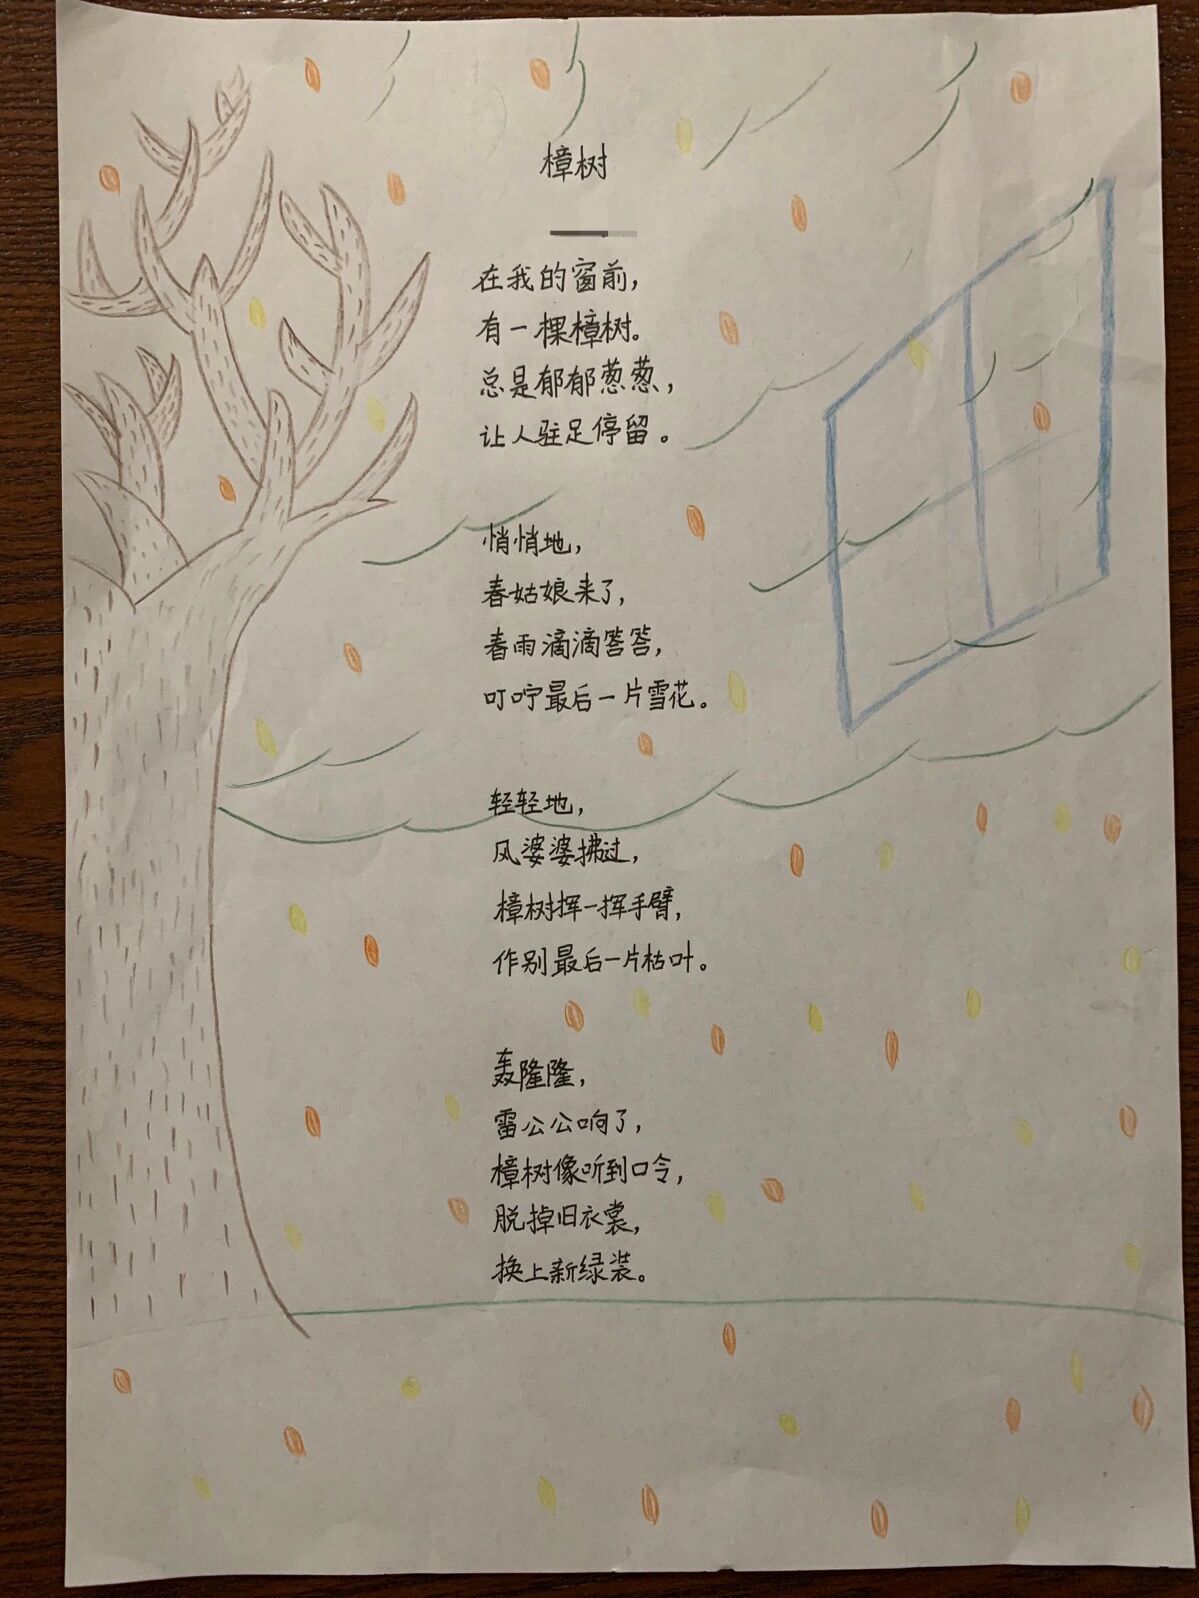 樟树
在我的窗前，
有一棵樟树。
总是郁郁葱葱，
让人驻足停留。
悄悄地，
春姑娘来了，
春雨滴滴答答，
叮咛最后一片雪花。
轻轻地，
风婆婆拂过，
樟树挥一挥手臂，
作别最后一片枯叶。
轰隆隆，
雷公公响了，
樟树像听到口令，
脱掉旧衣裳，
换上新绿装。